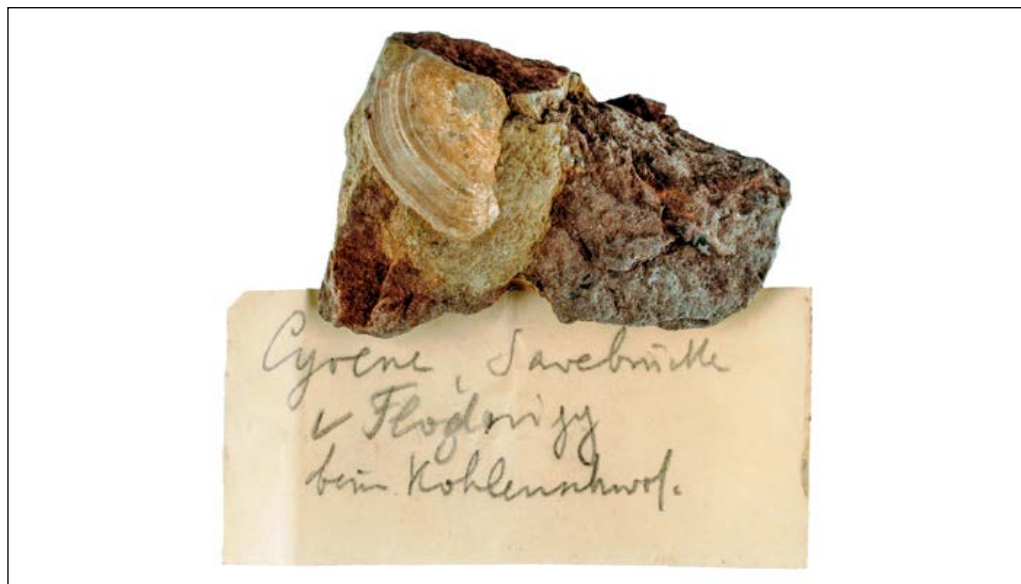 Cyrene, Savebrücke
v Flödnigg
beim Kohlenschurf.